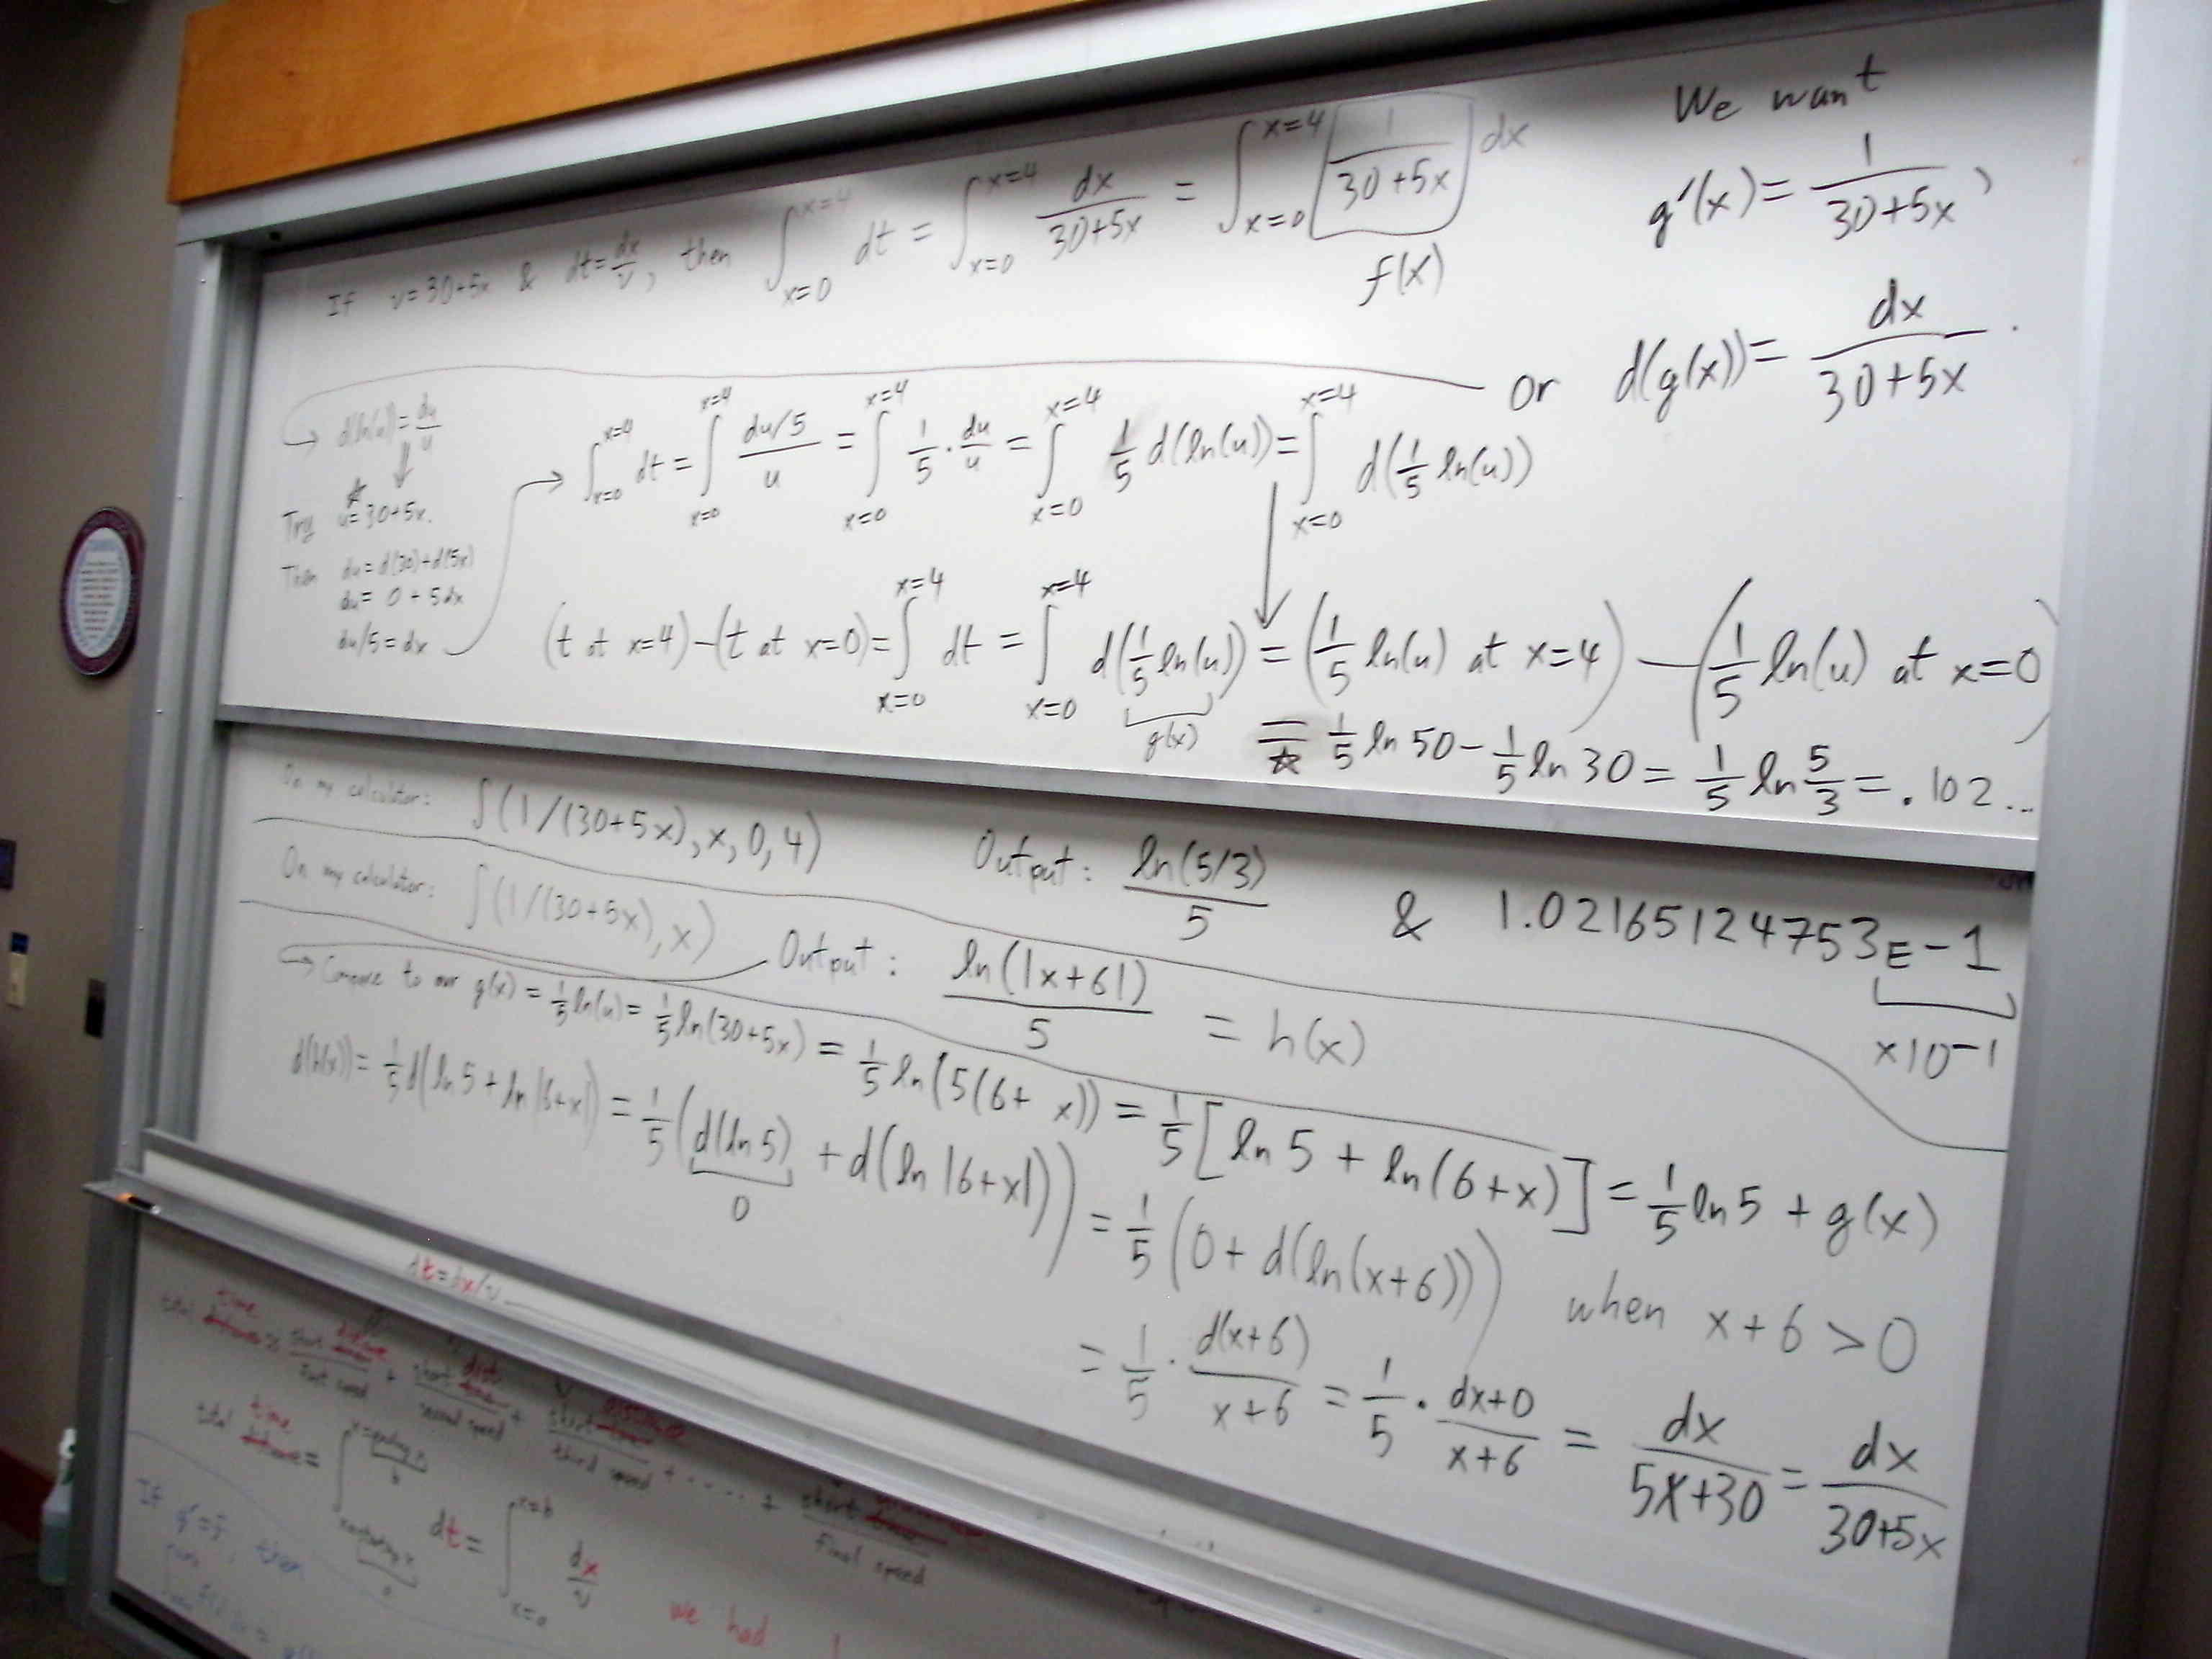 If v=30+5x & dt=dx/v, then ∫_{x=0}^{x=4} dt = ∫_{x=0}^{x=4} dx/(30+5x) = ∫_{x=0}^{x=4} 1/(30+5x) dx
f(x)
We want
g'(x) = 1/(30+5x),
or d(g(x)) = dx/(30+5x).
→ d(ln(u)) = du/u
↓
Try u=30+5x.
Then du=d(30)+d(5x)
du= 0+5dx
du/5=dx
→ ∫_{x=0}^{x=4} dt = ∫_{x=0}^{x=4} (du/5)/u = ∫_{x=0}^{x=4} 1/5 · du/u = ∫_{x=0}^{x=4} 1/5 d(ln(u)) = ∫_{x=0}^{x=4} d(1/5 ln(u))
(t at x=4)-(t at x=0) = ∫_{x=0}^{x=4} dt = ∫_{x=0}^{x=4} d(1/5 ln(u)) = (1/5 ln(u) at x=4) - (1/5 ln(u) at x=0)
g(x)
= 1/5 ln 50 - 1/5 ln 30 = 1/5 ln 5/3 = .102...
On my calculator: ∫(1/(30+5x),x,0,4) Output: ln(5/3)/5 & 1.02165124753E-1
×10^-1
On my calculator: ∫(1/(30+5x),x) Output: ln(|x+6|)/5 = h(x)
→ Compare to our g(x) = 1/5 ln(u) = 1/5 ln(30+5x) = 1/5 ln(5(6+ x)) = 1/5 [ln 5 + ln(6+x)] = 1/5 ln 5 + g(x)
d(h(x)) = 1/5 d(ln 5 + ln|6+x|) = 1/5 (d(ln 5) + d(ln|6+x|)) = 1/5 (0+d(ln(x+6))) when x+6>0
0
= 1/5 · d(x+6)/(x+6) = 1/5 · (dx+0)/(x+6) = dx/(5x+30) = dx/(30+5x)
dt=dx/v
total time
short first speed + short dist second speed + short third speed + ..... + short final speed
total time = ∫ dt = ∫_{x=a}^{x=b} dx/v
we had
If g'=f, then